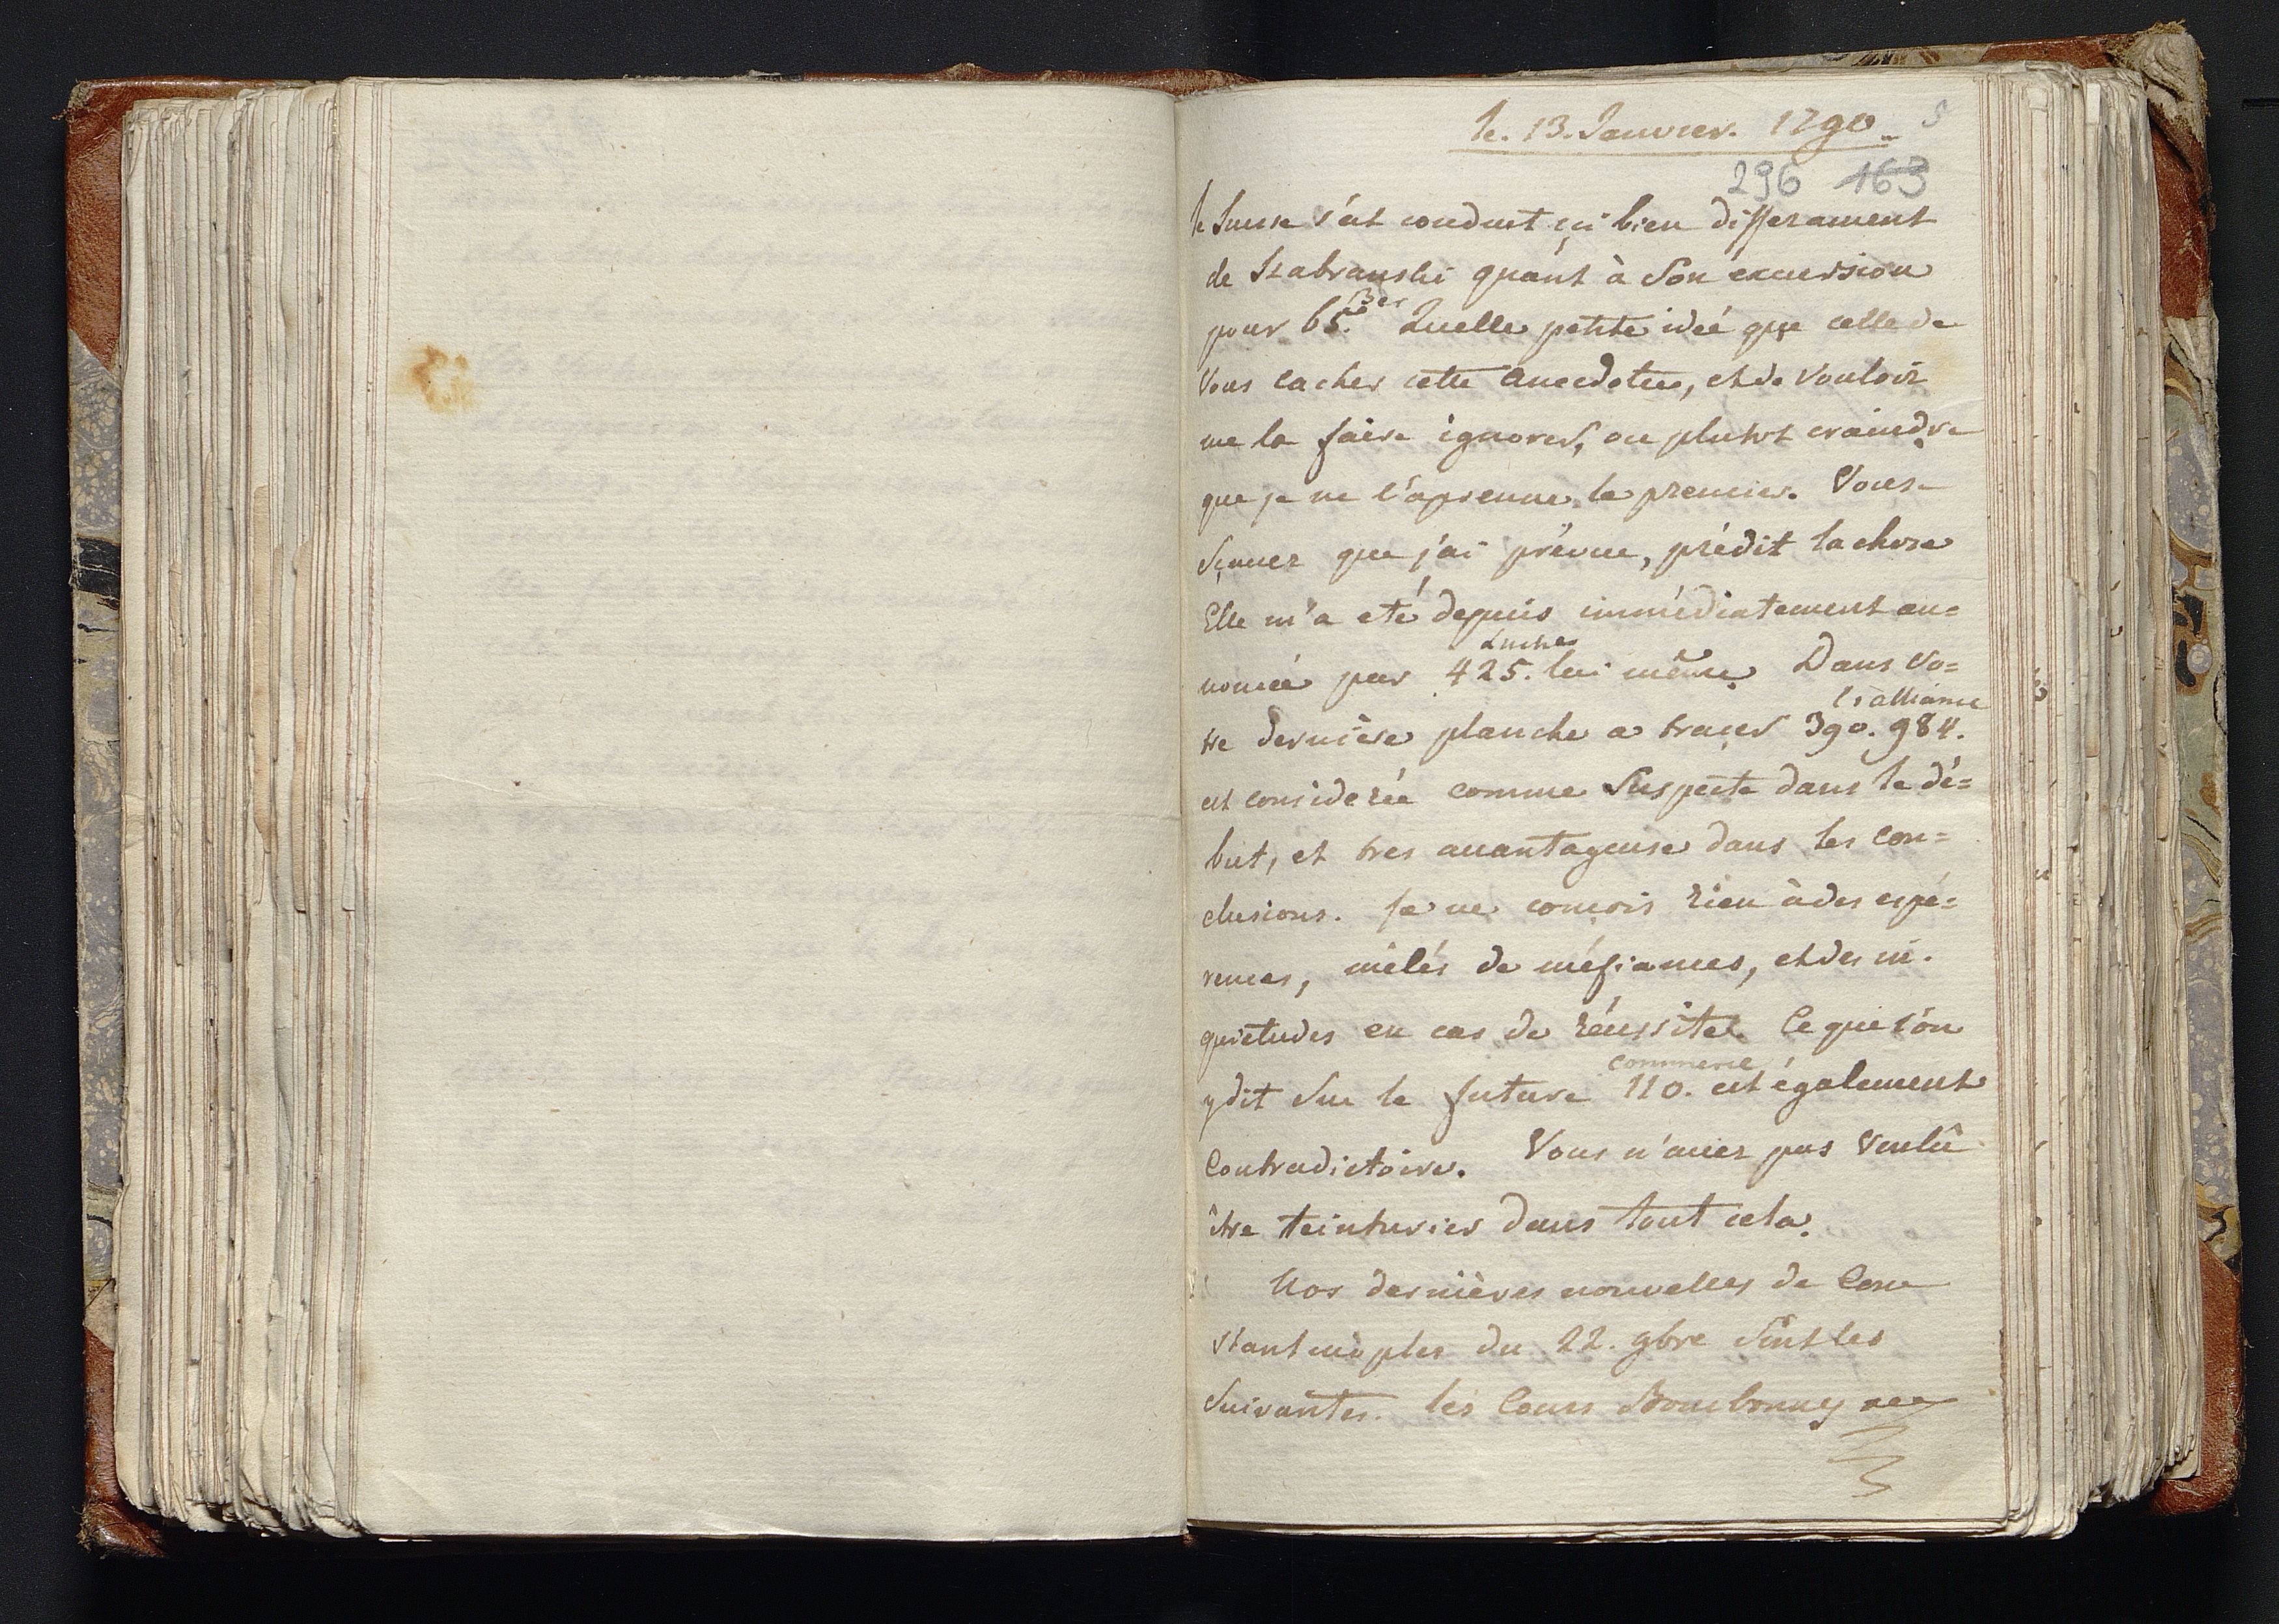 le. 13. Janvier. 1790
296 163
le Suisse s'est conduit içi bien differament
de Szabranski quánt à Son éxcursion
pour 65. Quelle petite idée que celle de
Vous cacher cette anecdotes, et de Vouloir
me la faire ignorer, ou plutot craindre
que je ne l'aprenne le premier. Vous
Sçavez que j'ai prévue, prédit la chose
Elle m'a eté depuis immédiatement an=
Luches
noncée par 425. lui même. Dans vo=
l'alliance
tre dernière planche a traçer 390. 984.
est considerée comme Suspecte dans le dé=
but, et tres avantageuse dans les con=
clusions. Je ne conçois rien à des espé=
rences, mélés de méfiances, et des in-
quietudes en cas de réussite. Ce que l'on
commerce
y dit Sur le future 110. est également
Contradictoire. Vous n'aviez pas Voulû
être teinturier dans tout cela.
Nos dernières nouvelles de Con
stantinoples du 22. 9bre Sont les
Suivantes. les Cours Bourbonnes